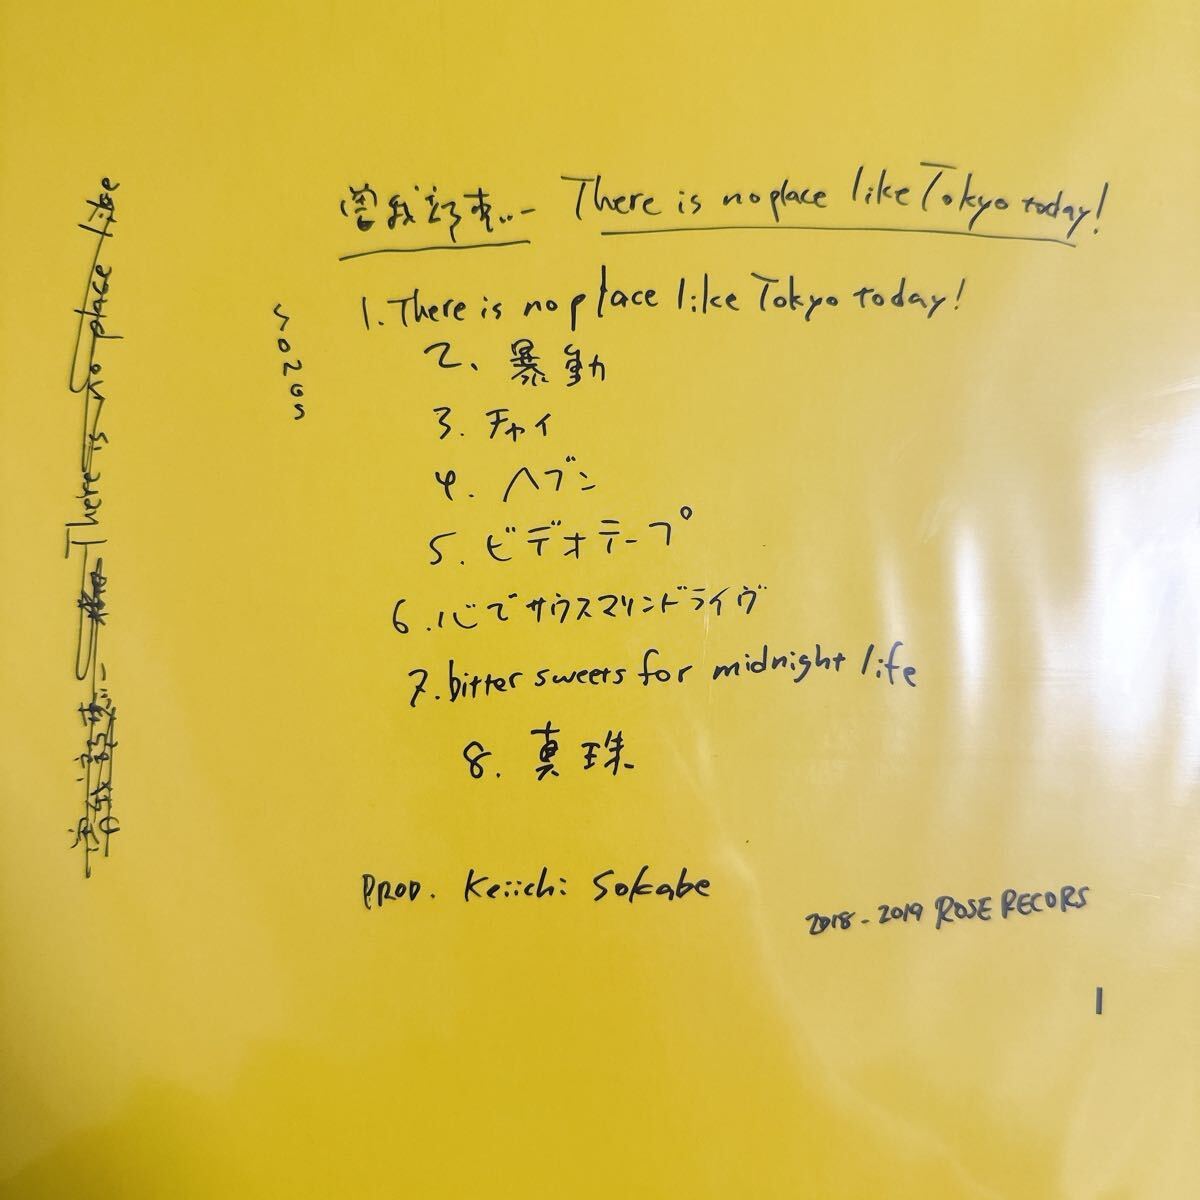 曽我部恵一 There is no place like Tokyo today!
SONGS
1. There is no place like Tokyo today!
2. 暴動
3. チャイ
4. ヘブン
5. ビデオテープ
6. 心でサウスマリンドライヴ
7. bitter sweets for midnight life
8. 真珠
PROD. Keiichi Sokabe
2018-2019 ROSE RECORS
曽我部恵一 There is no place like